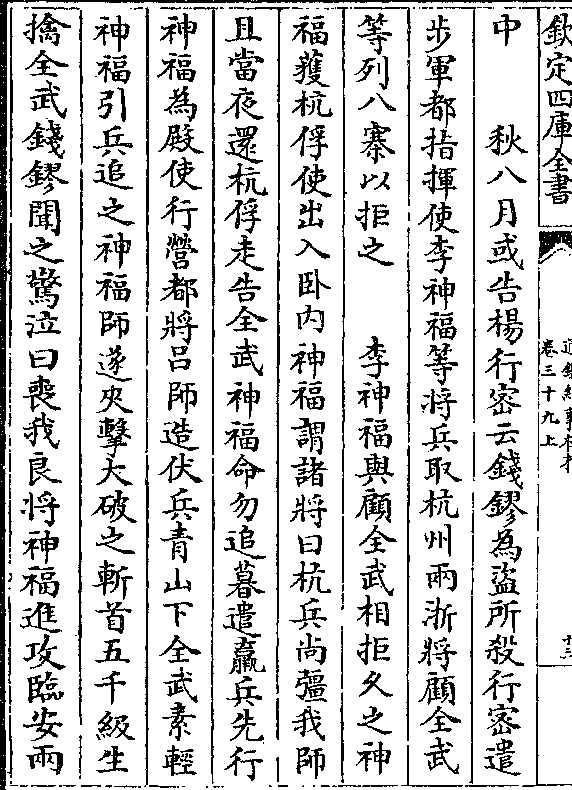 欽定四庫全書
通鑑紀事本末
卷三十九上
十三
中　　秋八月或告楊行密云錢鏐為盜所殺行密遣
步軍都指揮使李神福等將兵取杭州兩浙將顧全武
等列八寨以拒之　　李神福與顧全武相拒久之神
福獲杭俘使出入卧内神福謂諸將曰杭兵尚彊我師
且當夜還杭俘走告全武神福命勿追暮遣羸兵先行
神福為殿使行營都將吕師造伏兵青山下全武素輕
神福引兵追之神福師造夾擊大破之斬首五千級生
擒全武錢鏐聞之驚泣曰喪我良將神福進攻臨安兩